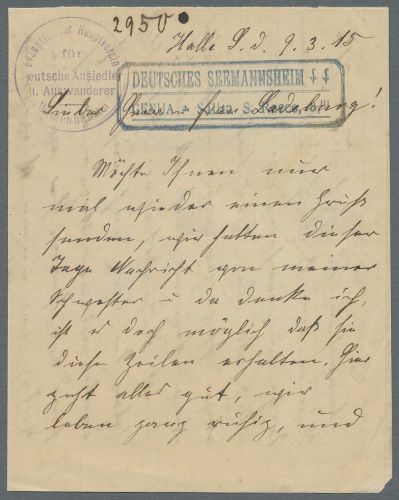 2950
Halle S. d. 9.3.15
Evangelischer Hauptverein
für
deutsche Ansiedler
u. Auswanderer
Witzenhausen
DEUTSCHES SEEMANNSHEIM
GENUA - Salita S. Rocco
Lieber Herr u. Frau Ladeburg!
Möchte Ihnen nur
mal wieder einen Gruß
senden, wir hatten dieser
Tage Nachricht von meiner
Schwester u da denke ich,
ist es doch möglich daß sie
diese Zeilen erhalten. Hier
geht alles gut, wir
leben ganz ruhig, und